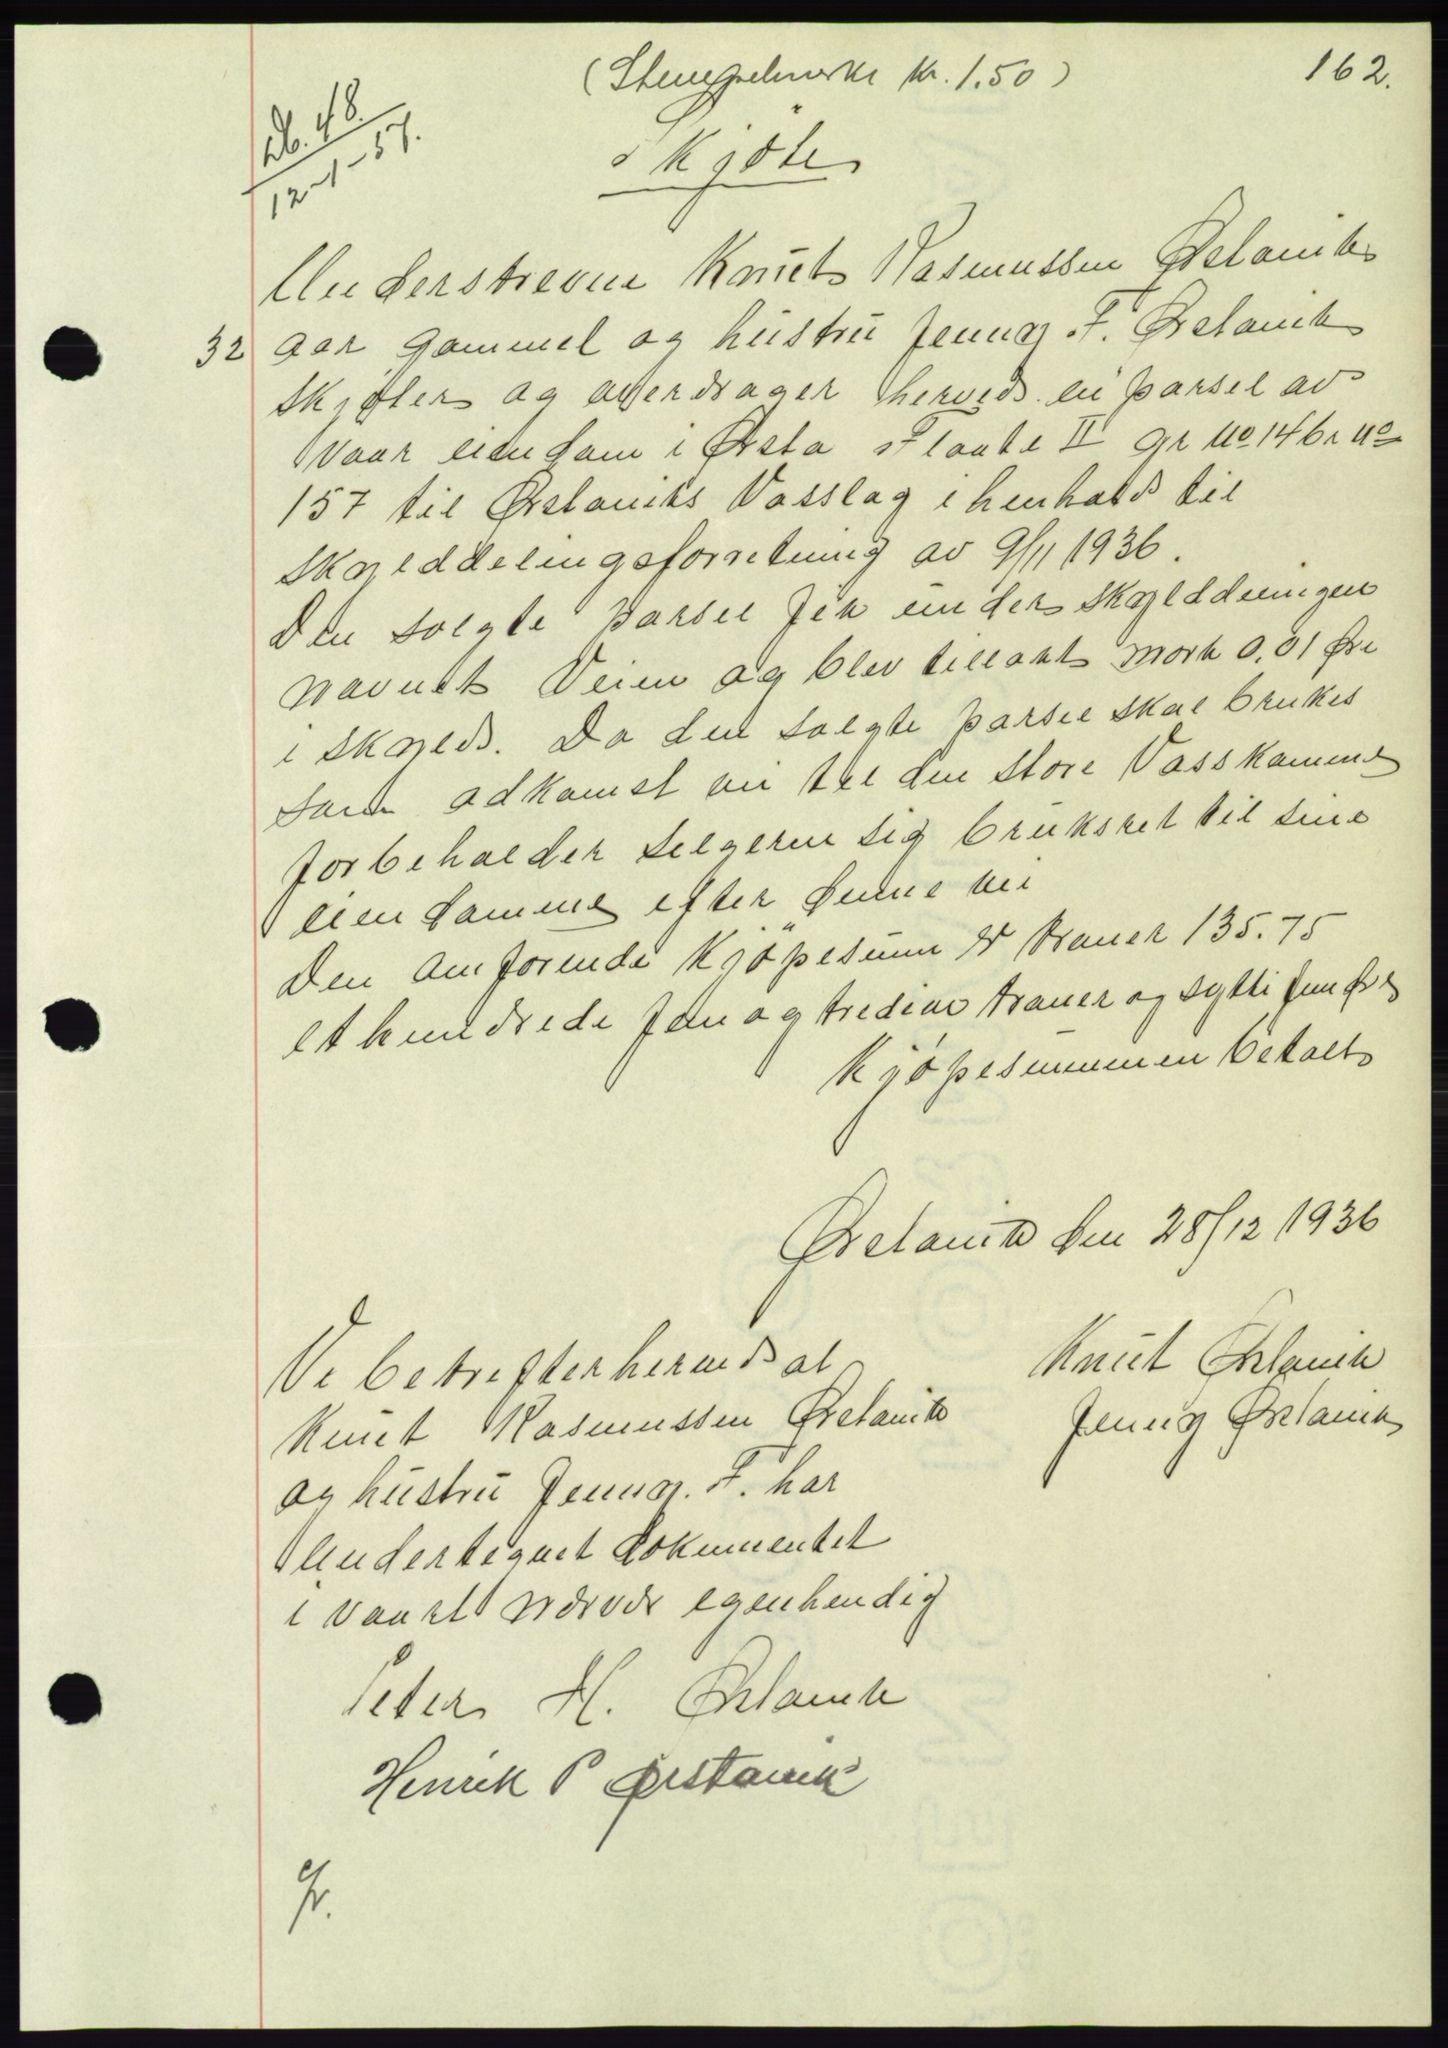 (Stempelmerke kr. 1.50)
162.
Db. 48.
12-1-37.
Skjøte
Underskrevne Knut Rasmussen Ørstavik
32 aar gammel og hustru Jenny F. Ørstavik
skjøter og overdrager herved en parsel av
vaar eiendom i Ørsta Flaate II gr no 14 br no
157 til Ørstaviks Vasslag i henhold til
skylddelingsforretning av 9/11 1936.
Den solgte parsel fik under skylddelingen
navnet Veien og blev tillakt mark 0.01 øre
i skyld. Da den solgte parsel skal brukes
som adkomst vei til den store Vasskamme
forbeholder selgeren sig bruksret til sine
eiendomme efter denne vei
Den omforende kjöpesum er kroner 135.75
et hundrede fem og tredeve kroner og sytti fem øre
Kjöpesummen betalt
Ørstavik den 28/12 1936
Knut Ørstavik
Jenny Ørstavik
Vi bekrefter herved at
Knut Rasmussen Ørstavik
og hustru Jenny. F. har
undertegnet dokumentet
i vaart nærvær egenhendig
Peter H. Ørstavik
Henrik P Ørstavik